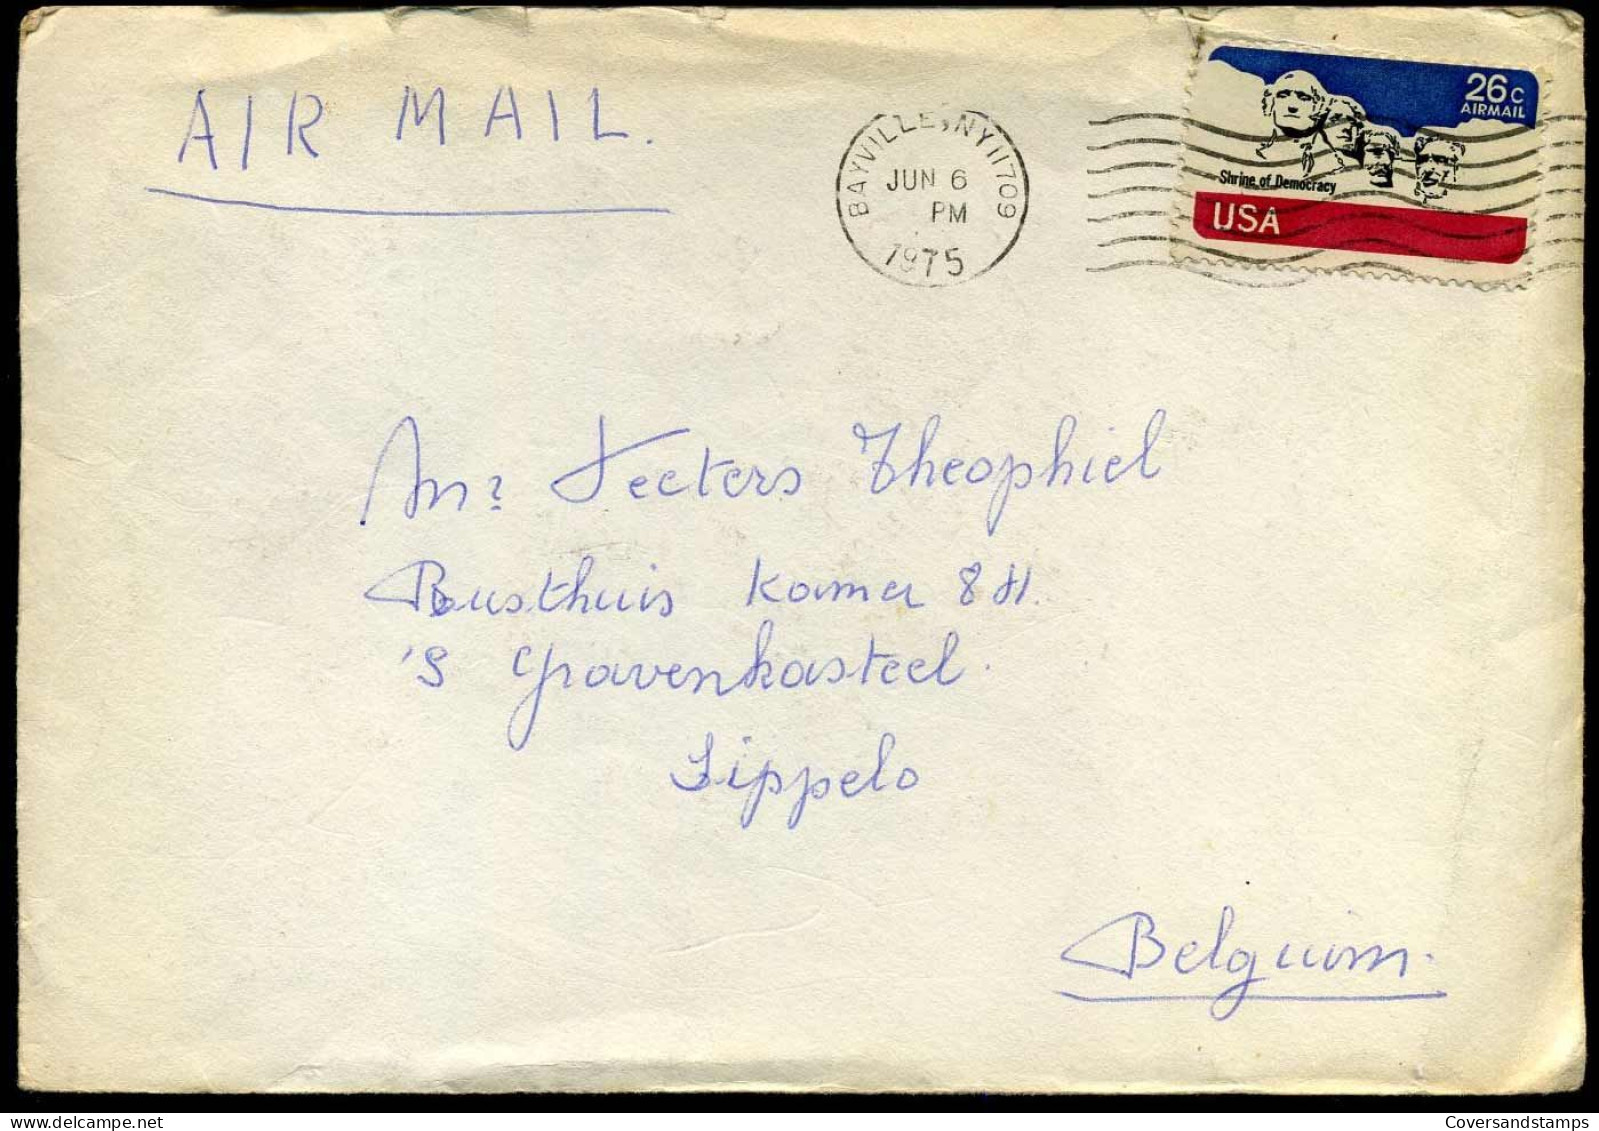 AIR MAIL.
BAYVILLE, NY 11709
JUN 6
PM
1975
26c
AIRMAIL
Shrine of Democracy
USA
Mr. Teeters Theophiel
Rusthuis Kamer 8 H.
's Gravenkasteel.
Lippelo
Belguim.
Coversandstamps